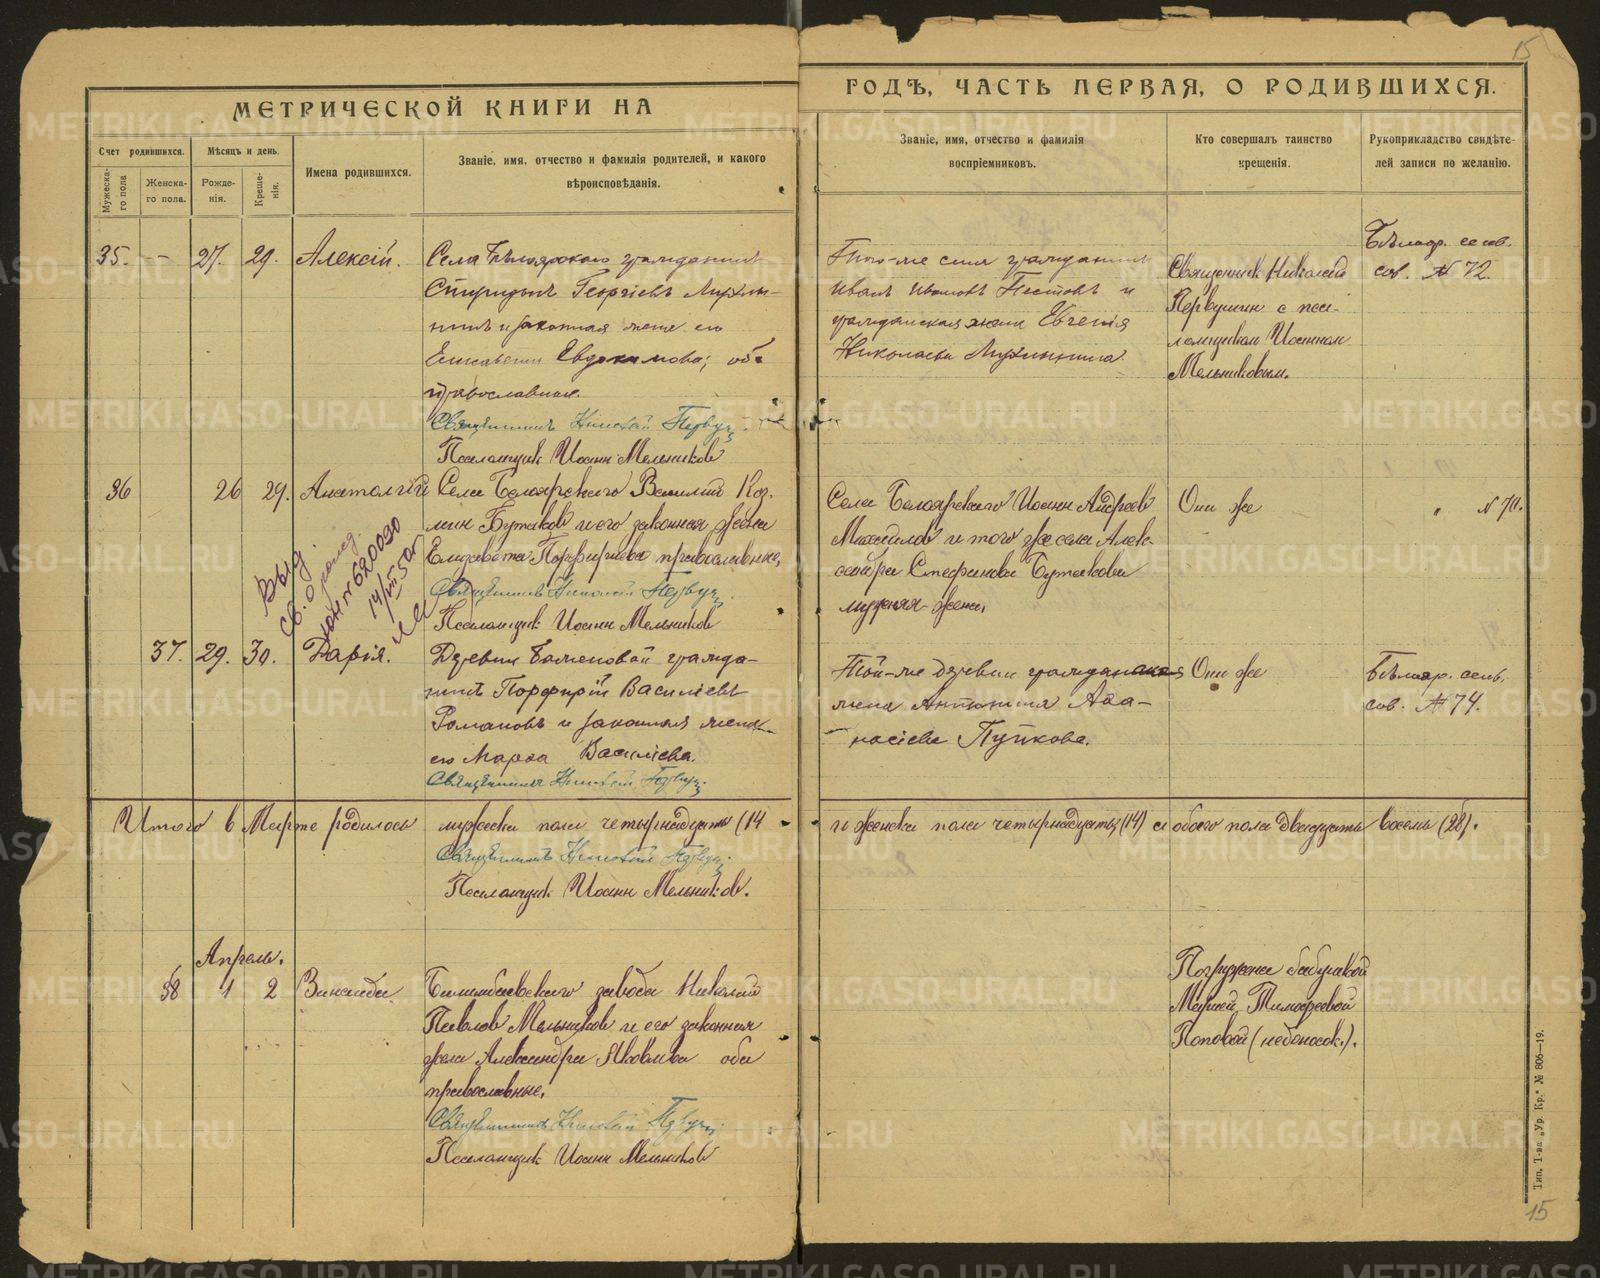 15
МЕТРИЧЕСКОЙ КНИГИ НА
ГОДЪ, ЧАСТЬ ПЕРВАЯ, О РОДИВШИХСЯ.
Счет родившихся.
Мужеска-го пола
Женска-го пола.
Мѣсяцъ и день.
Рожде-нія.
Креще-нія.
Имена родившихся.
Званіе, имя, отчество и фамилія родителей, и какого
вѣроисповѣданія.
Званіе, имя, отчество и фамилія
воспріемниковъ.
Кто совершалъ таинство
крещенія.
Рукоприкладство свидѣте-
лей записи по желанію.
35. - 27. 29. Алексій.
Села Бѣлоярскаго гражданинъ
Спиридонъ Георгіевъ
и законная жена его
Елисавета Евдокимова; оба
православные.
Священникъ Николай Первуш.
Псаломщик Иоанн Мельников
Того-же села гражданинъ
Иванъ Ивановъ Пестовъ и
гражданская жена Евгенія
Николаева
Священник Николай
Первушин с пса-
ломщиком Иоанном
Мельниковым.
Бѣлояр. сельс.
сов. № 72.
36 26 29. Анатолий
Села Белоярского Василий Коз-
мин Бутаков и его законная жена
Елизавета Порфирьева православные.
Священникъ Николай Первуш.
Псаломщик Иоанн Мельников
Села Белоярского Иоанн Андреев
Михайлов и того же села Алек-
сандра Стефанова Бутакова
мужняя жена.
Они же
" № 71.
Выд.
св. о рожд.
№ 620090
14/VII 50г
37. 29. 30. Дарія.
Деревни Гаменовой гражда-
нинъ Порфирій Васильевъ
Романовъ и законная жена
его Марѳа Васильева.
Священникъ Николай Первуш.
Той-же деревни гражданская
жена Антонина Аѳа-
насіева Пупкова.
Они же
Бѣлояр. сель.
сов. № 74.
Итого в Марте родилось мужска пола четырнадцать (14
и женска пола четырнадцать (14) а обоего пола двадцать восемь (28).
Священникъ Николай Первуш.
Псаломщик Иоанн Мельников.
Апрель.
38 1 2 Зинаида
Билимбаевского завода Николай
Павлов Мельников и его законная
жена Александра Яковлева оба
православные.
Священникъ Николай Первуш.
Псаломщик Иоанн Мельников
Погружена бабушкой
Марией Тимофеевой
Поповой (недоносок.).
Тип. Т-ва „Ур. Кр.“ № 806—19.
15
METRIKI.GASO-URAL.RU